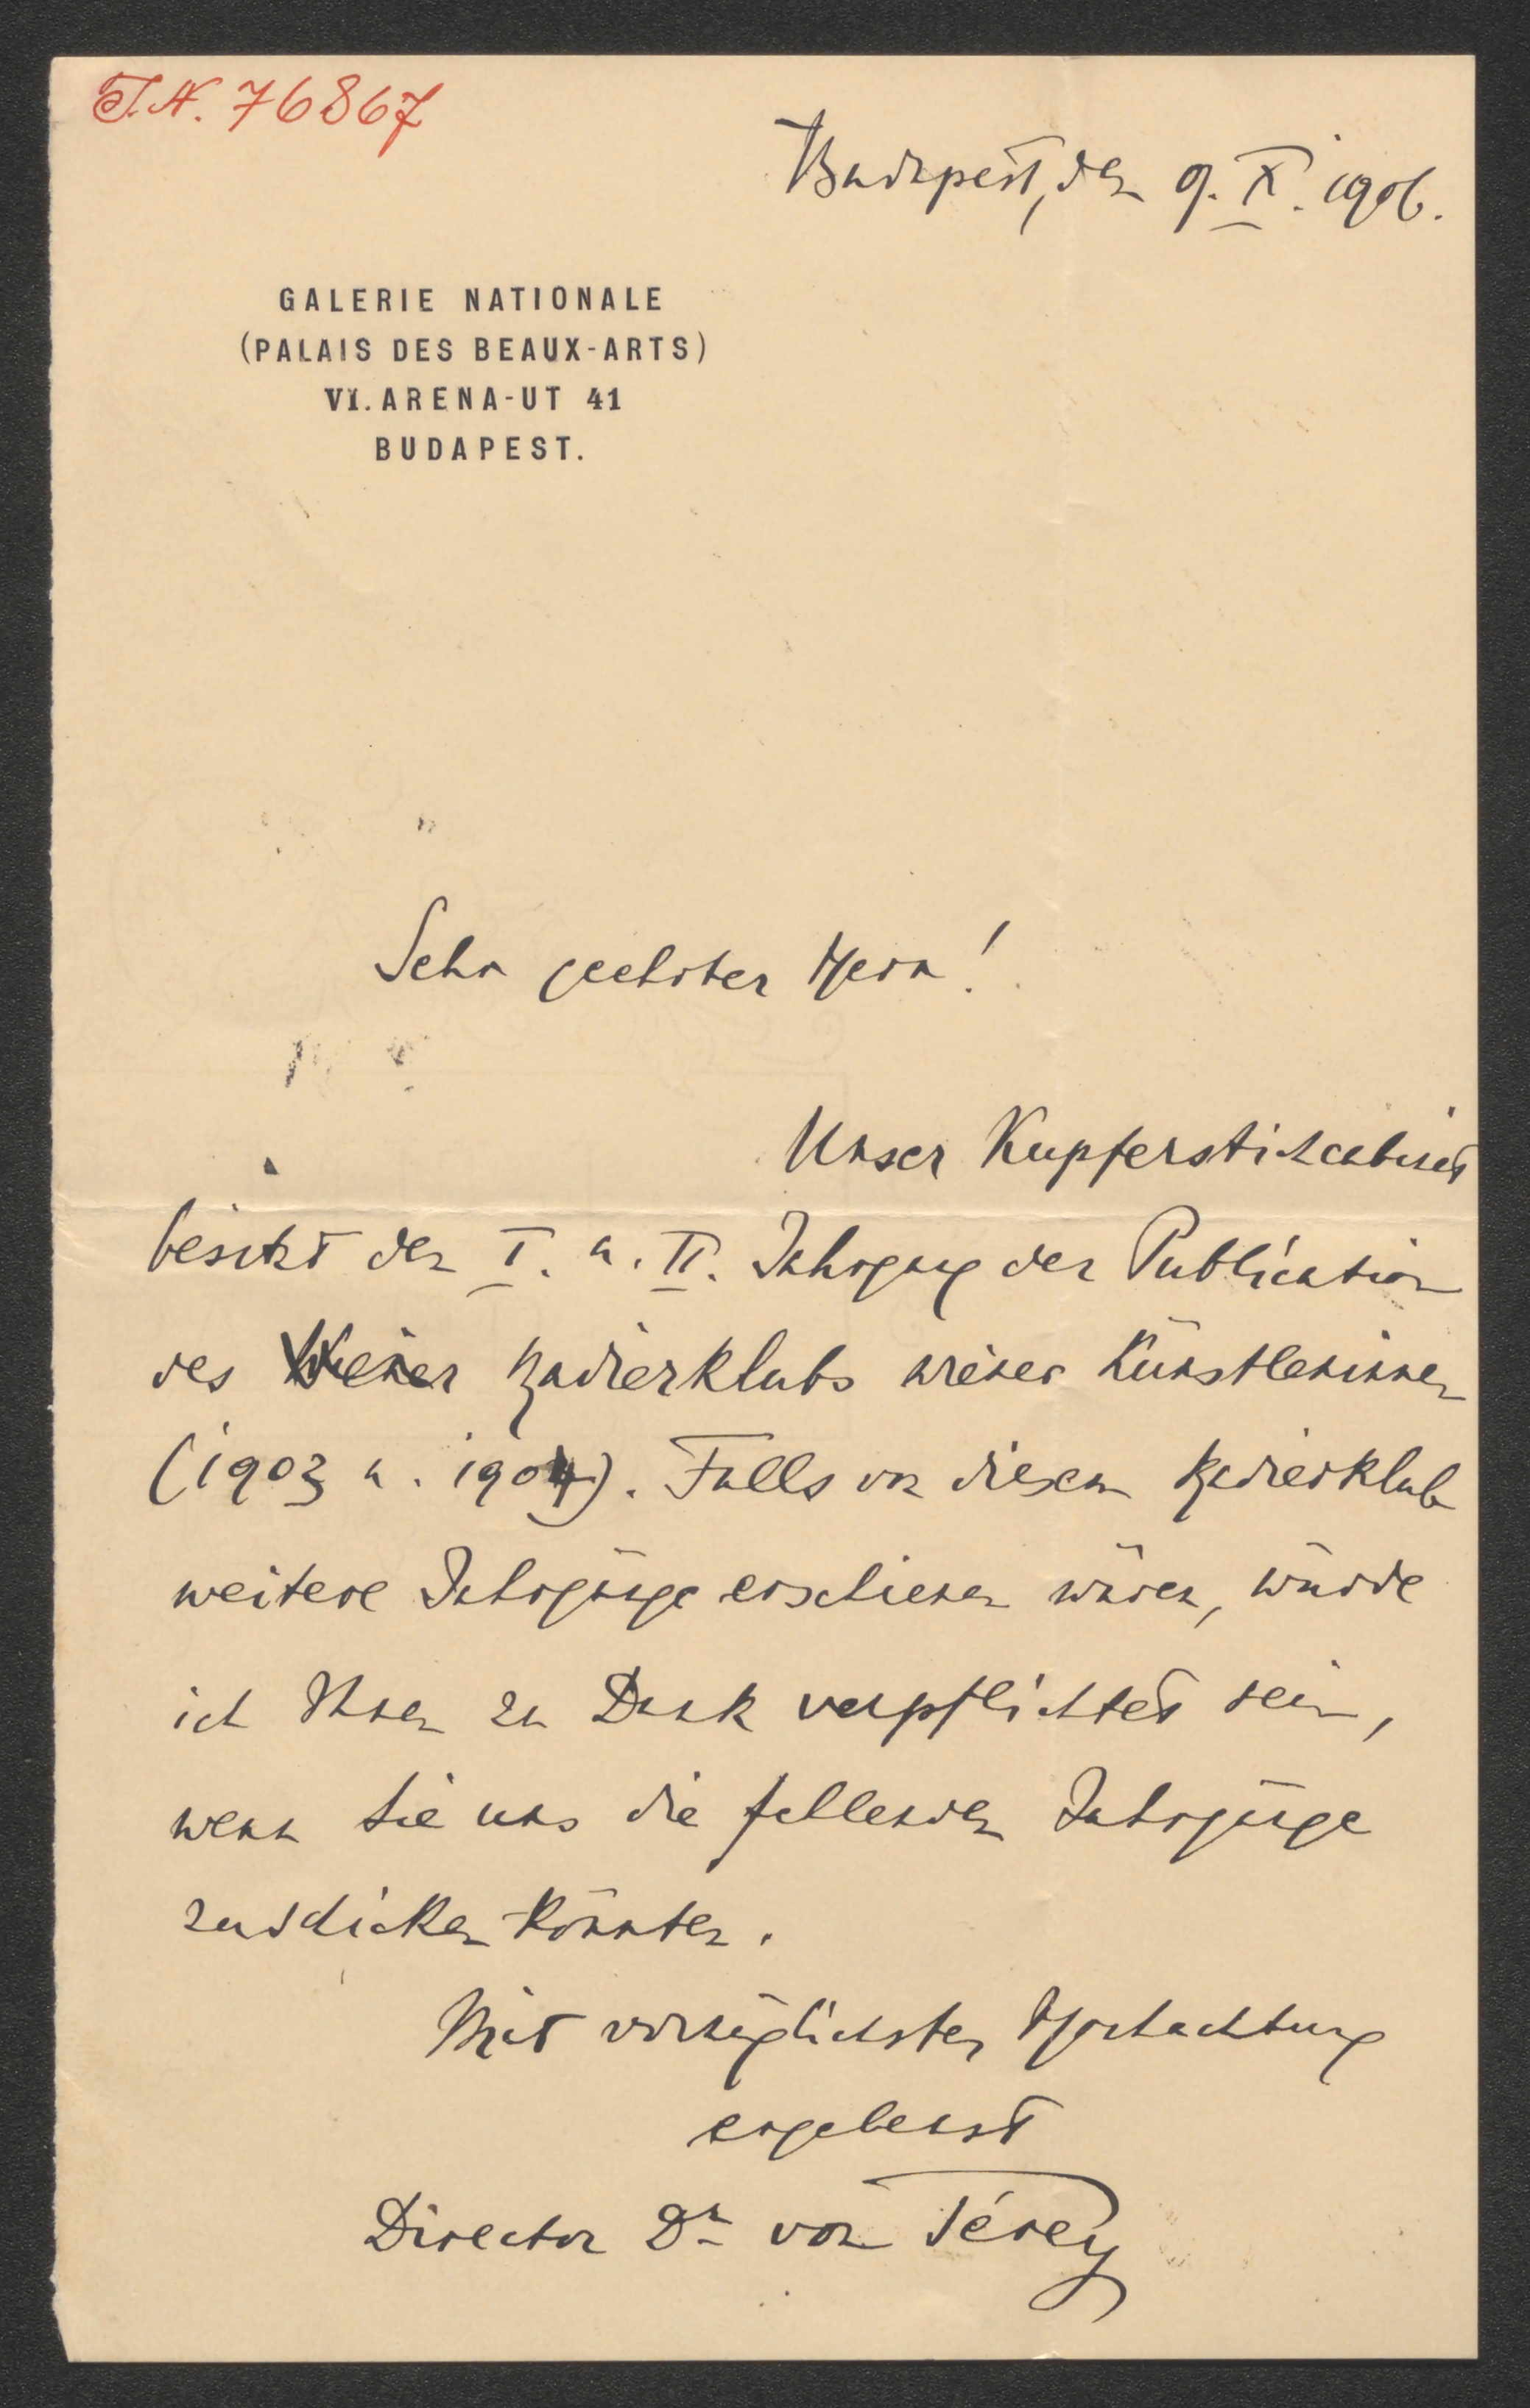 J.N. 76867
Budapest, den 9. X. 1906.
GALERIE NATIONALE
(PALAIS DES BEAUX-ARTS)
VI. ARENA-UT 41
BUDAPEST.
Sehr geehrter Herr!
Unser Kupferstichcabinet
besitzt den I. u. II. Jahrgang der Publication
des Wiener Radierklubs wiener Künstlerinnen
(1903 u. 1904). Falls von diesem Radierklub
weitere Jahrgänge erschienen wären, würde
ich Ihnen zu Dank verpflichtet sein,
wenn Sie uns die fehlenden Jahrgänge
zuschicken könnten.
Mit vorzüglichster Hochachtung
ergebenst
Director Dr von Térey